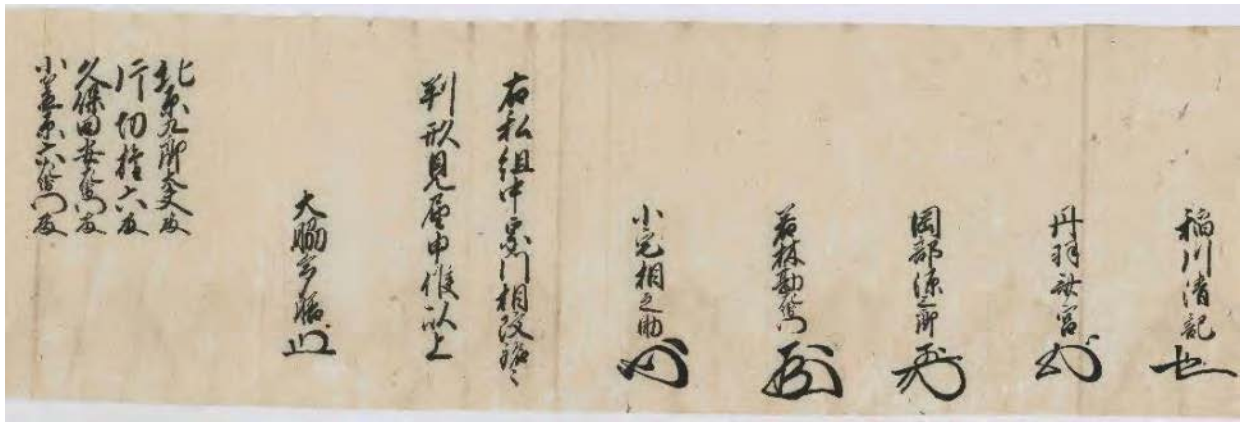 稲川清記
丹羽
岡部源之
若林勘右衛門
小宅相之助
右私組中宗門相改銘々
判形見届申候以上
大脇
北原九郎大夫殿
片切権六殿
久保田安右衛門殿
小笠原六右衛門殿